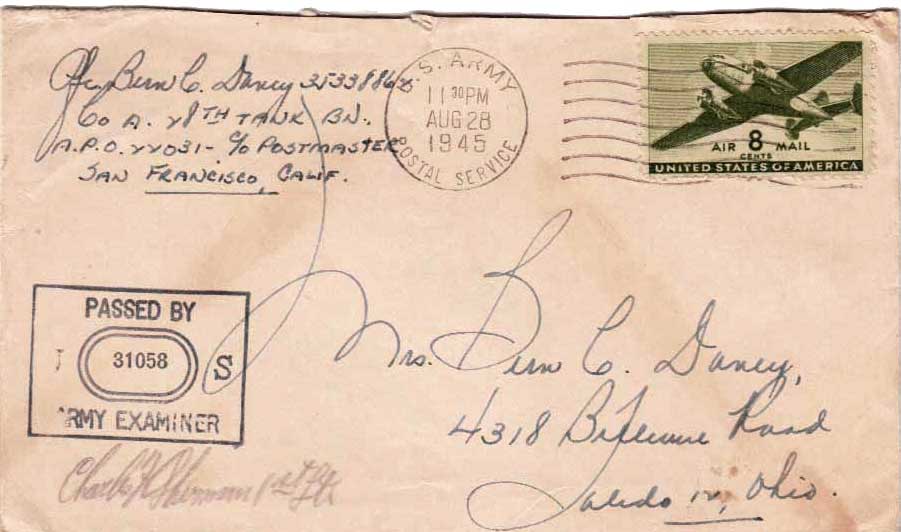 Pfc. Bern C. Daney 35338862
Co A. 28TH TANK BN.
A.P.O. 22031 - c/o POSTMASTER
SAN FRANCISCO, CALIF.
U.S. ARMY
11 30PM
AUG 28
1945
POSTAL SERVICE
AIR 8 MAIL
CENTS
UNITED STATES OF AMERICA
PASSED BY
31058 S
ARMY EXAMINER
1st Lt.
Mrs. Bern C. Daney,
4318 Road
Toledo 12, Ohio.